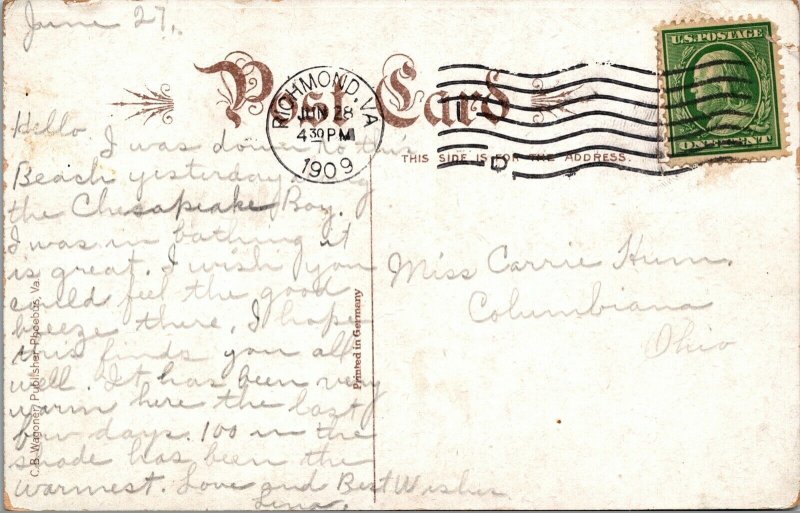 June 27,
Post Card
RICHMOND, VA.
JUN 28
4 30 PM
1909
D
U.S. POSTAGE
ONE CENT
THIS SIDE IS FOR THE ADDRESS.
Hello I was down to this
Beach yesterday
the Chesapeake Bay.
I was in bathing it
is great. I wish you
could feel the good
breeze there. I hope
this finds you all
well. It has been very
warm here the last
few days. 100 in the
shade has been the
warmest. Love and Best Wishes
Lena.
Miss Carrie Hum.
Columbiana
Ohio
Printed in Germany
C.B. Wagoner, Publisher Phoebus, Va.